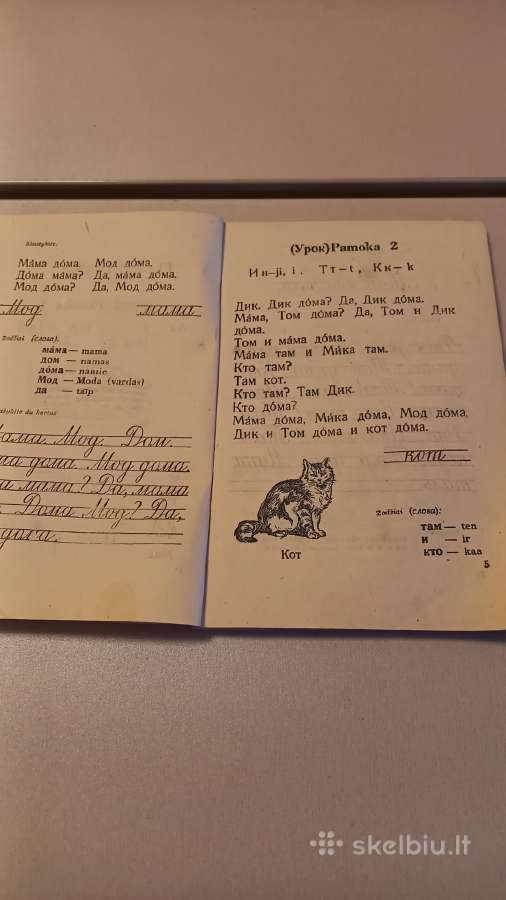 Máма дóма. Мод дóма.
Дóма мáма? Да, мáма дóма.
Мод дóма? Да, Мод дóма.
Мод мама
Žodžiai (слова):
мáма — mama
дом — namas
дóма — namie
Мод — Moda (vardas)
да — taip
du kartus
Мод. Дом.
дома Мод дома.
мама? Да, мама
Дома Мод? Да,
(Урок) Pamoka 2
Ии—ji, i. Тт—t, Кк—k
Дик. Дик дóма? Да, Дик дóма.
Máма, Том дóма? Да, Том и Дик
дóма.
Том и мáма дóма.
Máма там и Ми́ка там.
Кто там?
Там кот.
Кто там? Там Дик.
Кто дóма?
Máма дóма, Ми́ка дóма, Мод дóма,
Дик и Том дóма и кот дóма.
кот
Кот
Žodžiai (слова):
там — ten
и — ir
кто — kas
5
skelbiu.lt